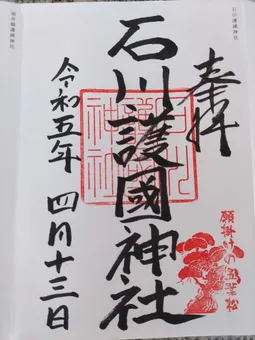 石川護國神社
奉拝
石川護國神社
願掛けの五葉松
令和五年 四月十三日
石川縣護國神社